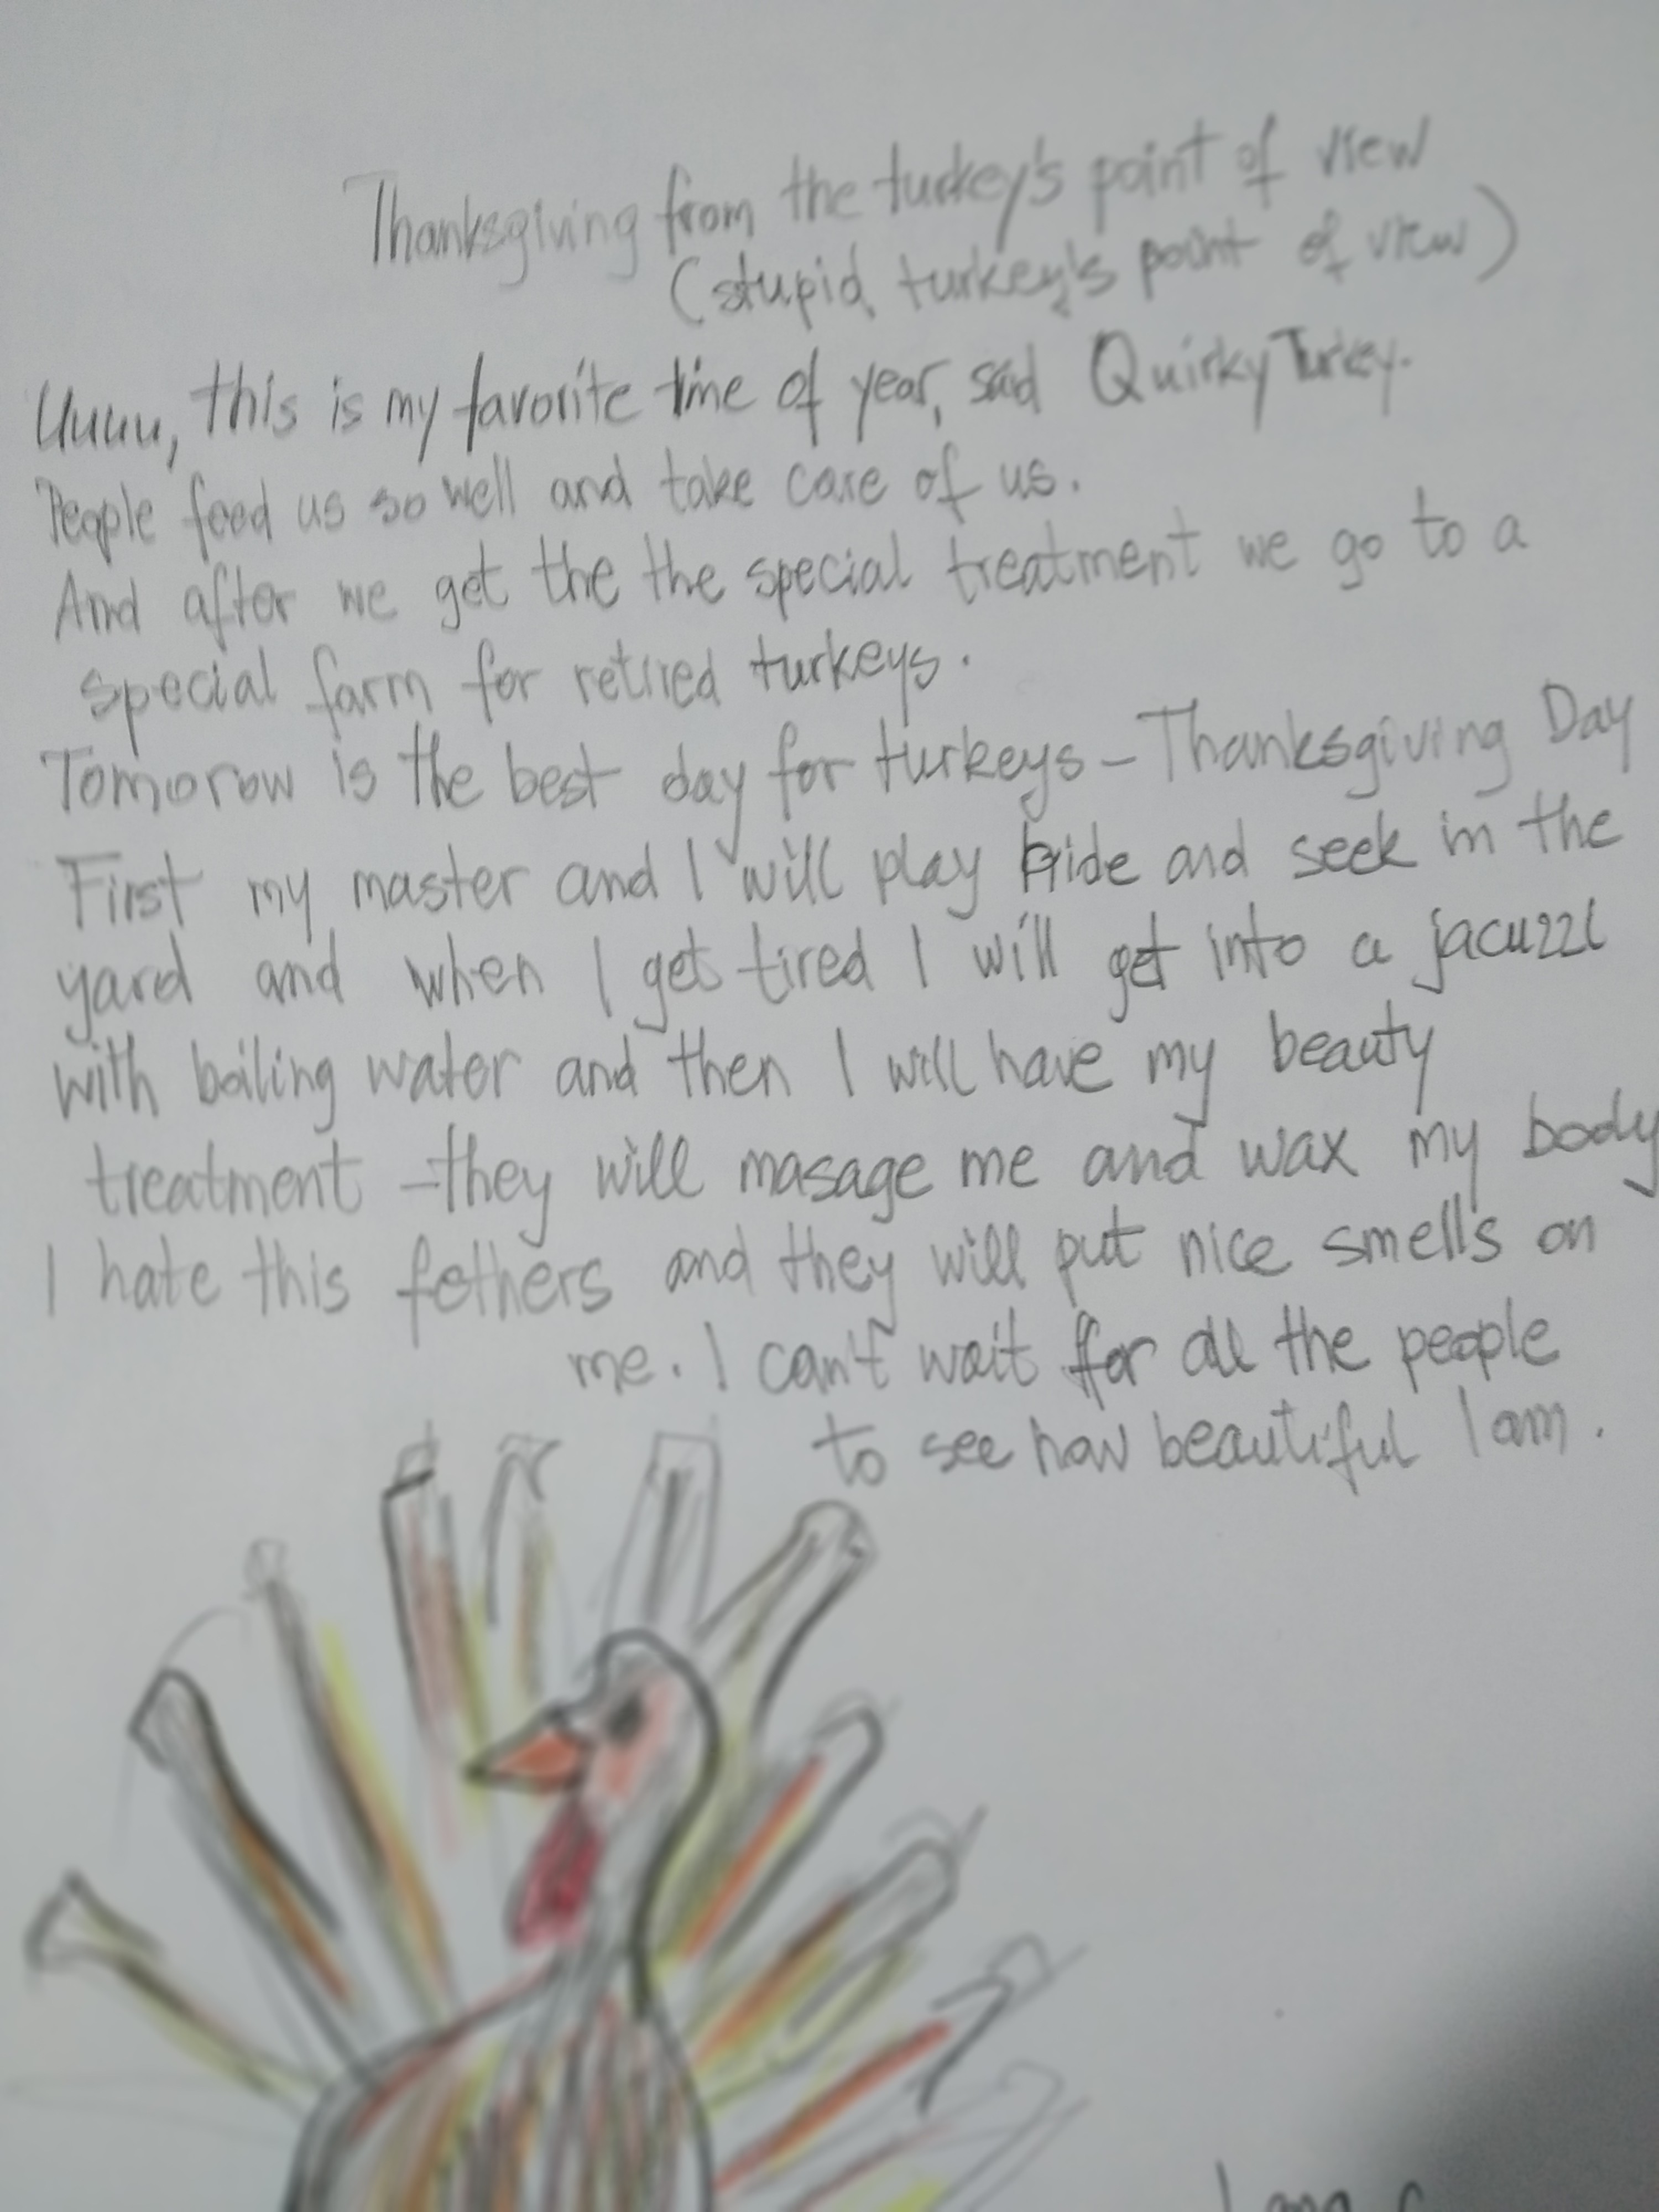 Thanksgiving from the turkey's point of view
(stupid turkey's point of view)
Uuuu, this is my favorite time of year, said Quirky Turkey.
People feed us so well and take care of us.
And after we get the the special treatment we go to a
special farm for retired turkeys.
Tomorow is the best day for turkeys - Thanksgiving Day
First my master and I will play hide and seek in the
yard and when I get tired I will get into a jacuzzi
with boiling water and then I will have my beauty
treatment - they will masage me and wax my body
I hate this fethers and they will put nice smells on
me. I can't wait for all the people
to see how beautiful I am.